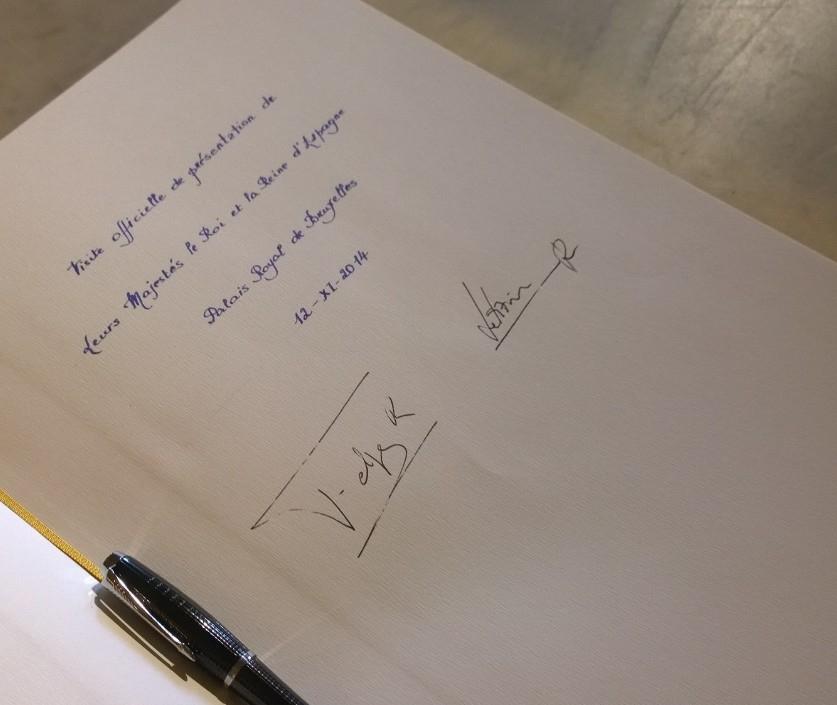 Visite officielle de présentation de
Leurs Majestés le Roi et la Reine d'Espagne
Palais Royal de Bruxelles
12-XI-2014
Letizia R
R